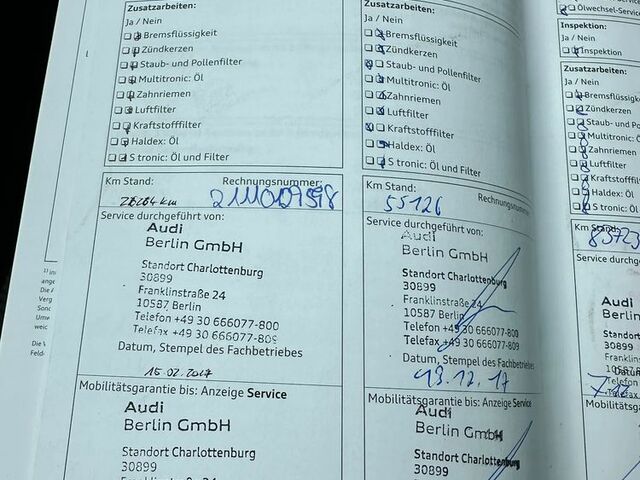 Zusatzarbeiten:
Ja / Nein
Bremsflüssigkeit
Zündkerzen
Staub- und Pollenfilter
Multitronic: Öl
Zahnriemen
Luftfilter
Kraftstofffilter
Haldex: Öl
S tronic: Öl und Filter
Km Stand:
Rechnungsnummer:
km
Service durchgeführt von:
Audi
Berlin GmbH
Standort Charlottenburg
30899
Franklinstraße 24
10587 Berlin
Telefon +49 30 666077-800
Telefax +49 30 666077-809
Datum, Stempel des Fachbetriebes
15.02.2017
Mobilitätsgarantie bis: Anzeige Service
Audi
Berlin GmbH
Standort Charlottenburg
30899
Zusatzarbeiten:
Ja / Nein
Bremsflüssigkeit
Zündkerzen
Staub- und Pollenfilter
Multitronic: Öl
Zahnriemen
Luftfilter
Kraftstofffilter
Haldex: Öl
S tronic: Öl und Filter
Km Stand:
Rechnungsnummer
55126
Service durchgeführt von:
Audi
Berlin GmbH
Standort Charlottenburg
30899
Franklinstraße 24
10587 Berlin
Telefon +49 30 666077-800
Telefax +49 30 666077-809
Datum, Stempel des Fachbetriebes
13.12.17
Mobilitätsgarantie bis: Anzeige Service
Audi
Berlin GmbH
Standort Charlottenburg
30899
Ölwechsel-Service
Inspektion:
Ja / Nein
Inspektion
Zusatzarbeiten:
Ja / Nein
Bremsflüssigkeit
Zündkerzen
Staub- und Pol
Multitronic: Öl
Zahnriemen
Luftfilter
Kraftstofffil
Haldex: Öl
S tronic: Öl u
Km Stand:
Service durchge
Audi
Berlin G
Standort
30899
Franklins
Mobilitätsg
Audi
Berlin
Standor
30899